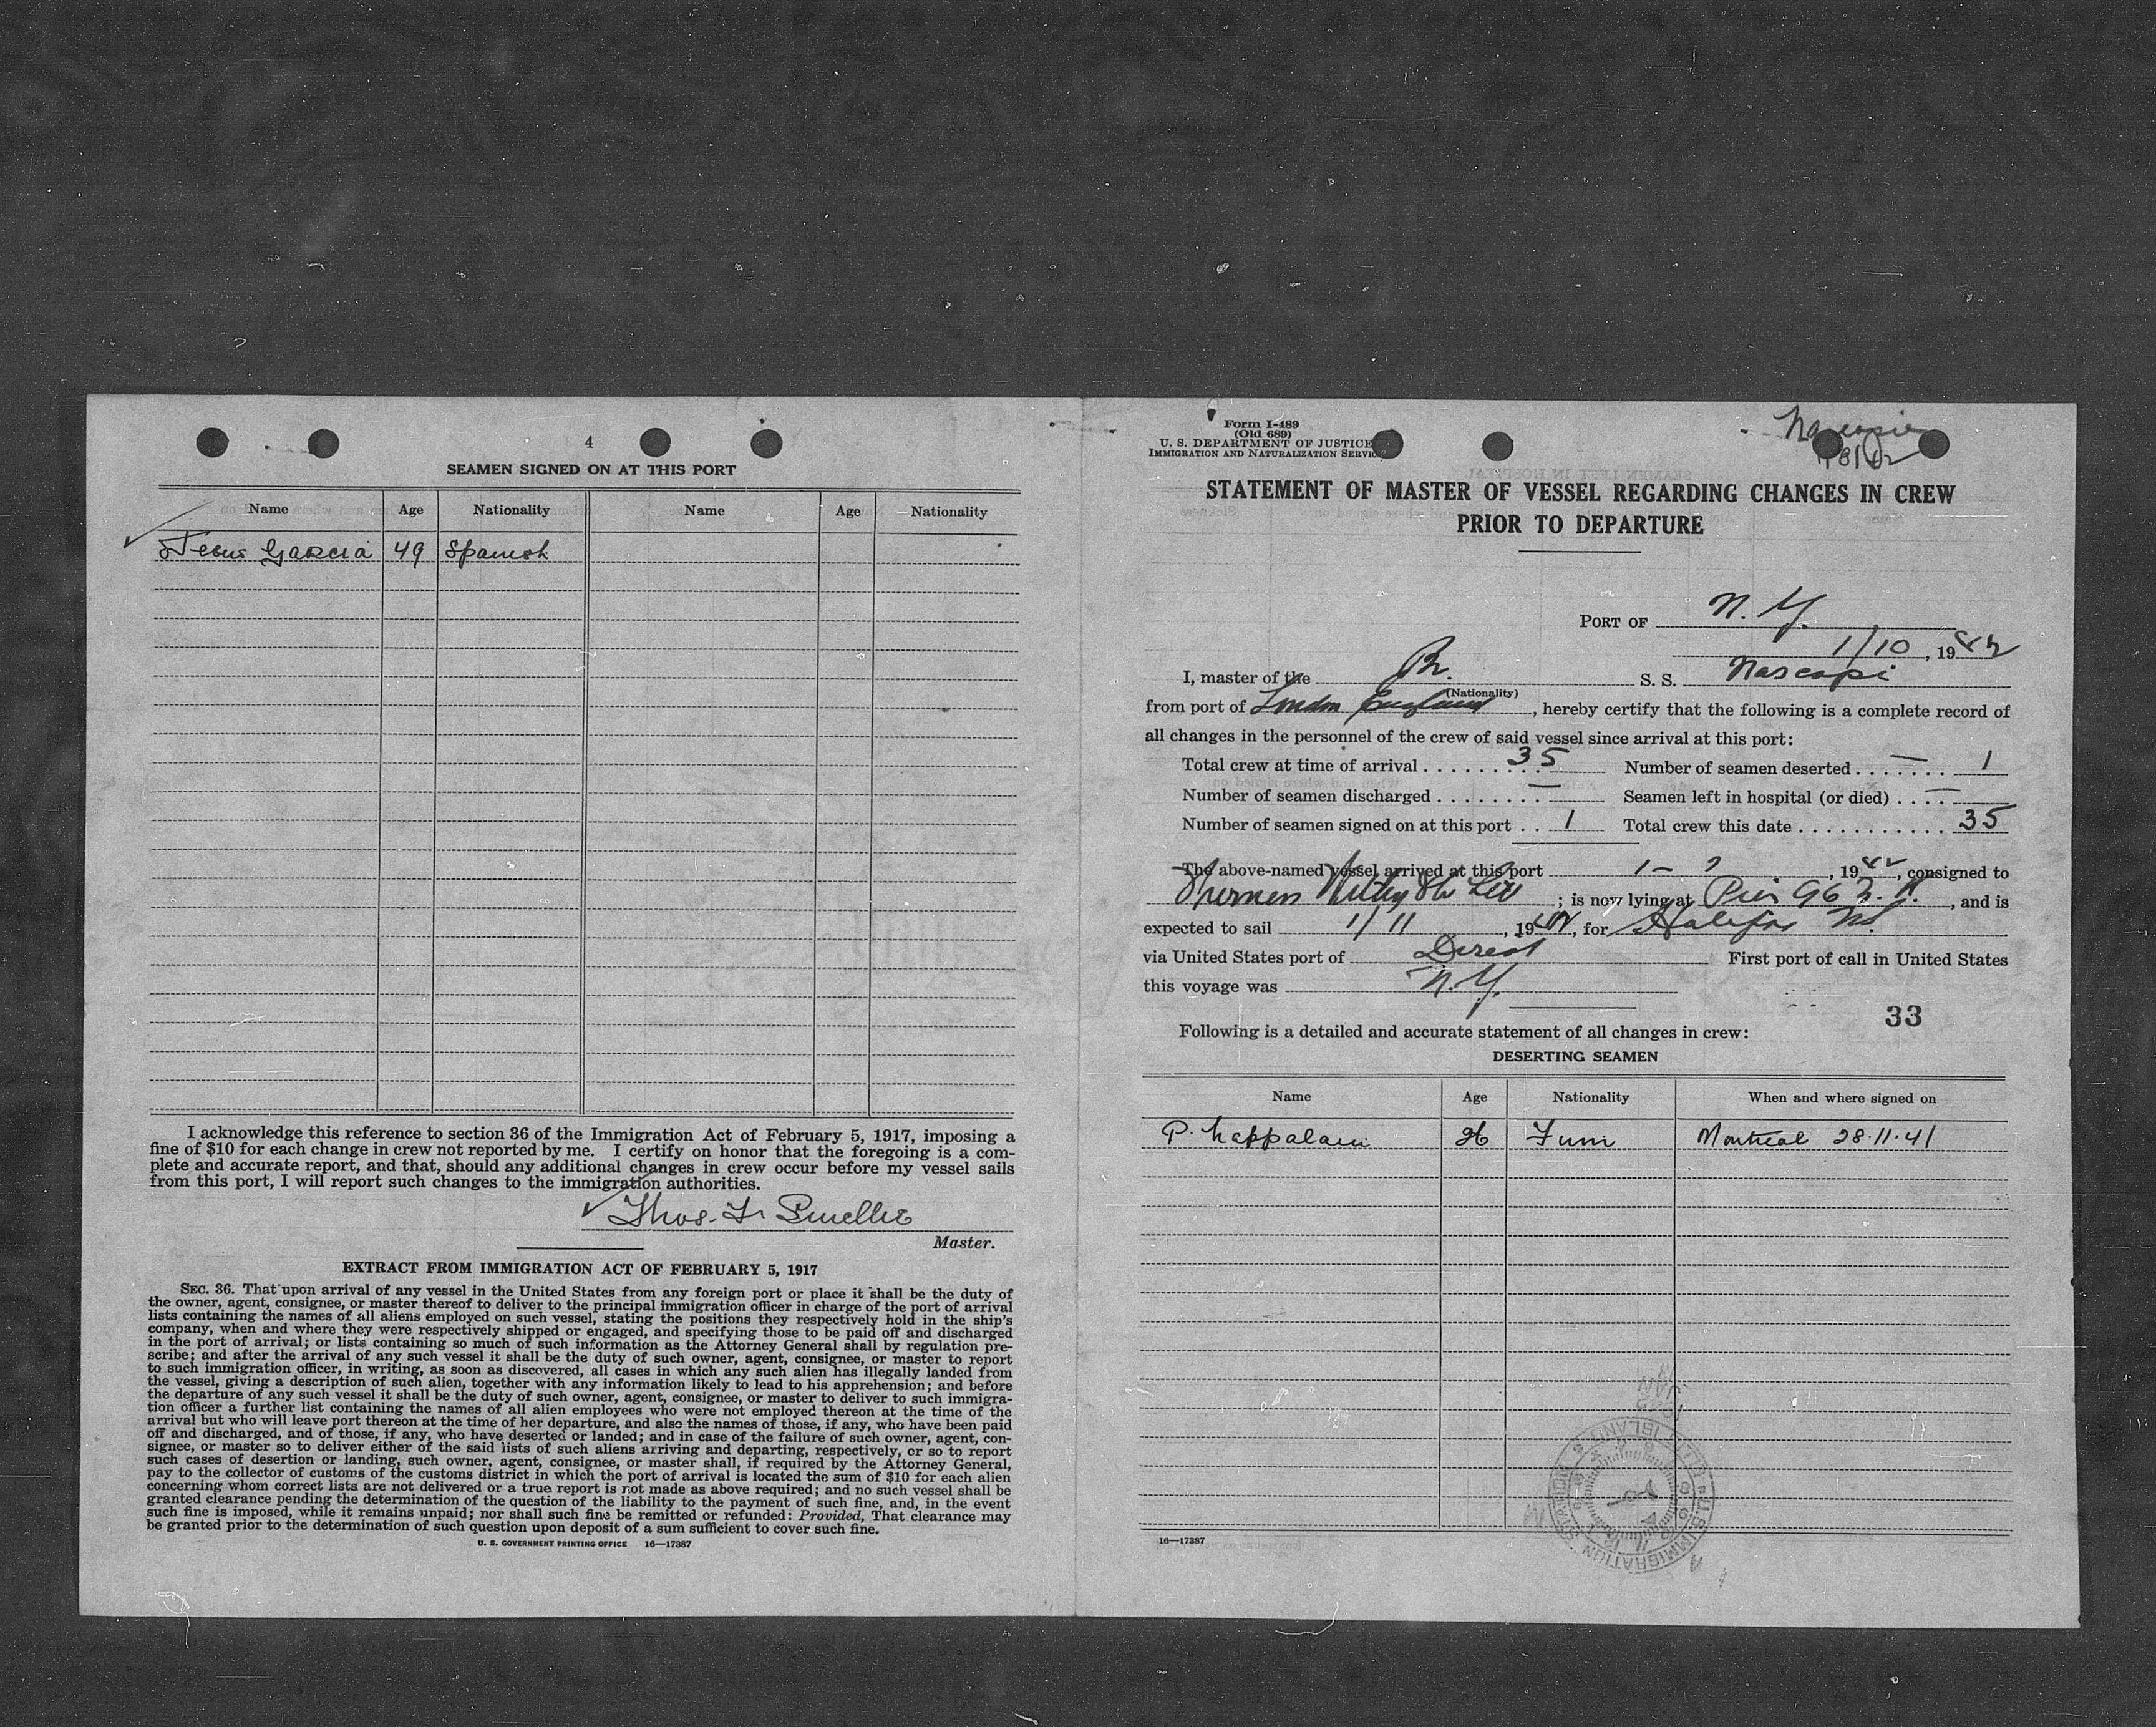 4
SEAMEN SIGNED ON AT THIS PORT
Name Age Nationality Name Age Nationality
Jesus Garcia 49 Spanish
I acknowledge this reference to section 36 of the Immigration Act of February 5, 1917, imposing a
fine of $10 for each change in crew not reported by me. I certify on honor that the foregoing is a com-
plete and accurate report, and that, should any additional changes in crew occur before my vessel sails
from this port, I will report such changes to the immigration authorities.
Thos. F. Smellie
Master.
EXTRACT FROM IMMIGRATION ACT OF FEBRUARY 5, 1917
SEC. 36. That upon arrival of any vessel in the United States from any foreign port or place it shall be the duty of
the owner, agent, consignee, or master thereof to deliver to the principal immigration officer in charge of the port of arrival
lists containing the names of all aliens employed on such vessel, stating the positions they respectively hold in the ship's
company, when and where they were respectively shipped or engaged, and specifying those to be paid off and discharged
in the port of arrival; or lists containing so much of such information as the Attorney General shall by regulation pre-
scribe; and after the arrival of any such vessel it shall be the duty of such owner, agent, consignee, or master to report
to such immigration officer, in writing, as soon as discovered, all cases in which any such alien has illegally landed from
the vessel, giving a description of such alien, together with any information likely to lead to his apprehension; and before
the departure of any such vessel it shall be the duty of such owner, agent, consignee, or master to deliver to such immigra-
tion officer a further list containing the names of all alien employees who were not employed thereon at the time of the
arrival but who will leave port thereon at the time of her departure, and also the names of those, if any, who have been paid
off and discharged, and of those, if any, who have deserted or landed; and in case of the failure of such owner, agent, con-
signee, or master so to deliver either of the said lists of such aliens arriving and departing, respectively, or so to report
such cases of desertion or landing, such owner, agent, consignee, or master shall, if required by the Attorney General,
pay to the collector of customs of the customs district in which the port of arrival is located the sum of $10 for each alien
concerning whom correct lists are not delivered or a true report is not made as above required; and no such vessel shall be
granted clearance pending the determination of the question of the liability to the payment of such fine, and, in the event
such fine is imposed, while it remains unpaid; nor shall such fine be remitted or refunded: Provided, That clearance may
be granted prior to the determination of such question upon deposit of a sum sufficient to cover such fine.
U. S. GOVERNMENT PRINTING OFFICE 16—17387
Form I-489
(Old 689)
U. S. DEPARTMENT OF JUSTICE
IMMIGRATION AND NATURALIZATION SERVIC
Nascopie
STATEMENT OF MASTER OF VESSEL REGARDING CHANGES IN CREW
PRIOR TO DEPARTURE
PORT OF N. Y.
1/10, 1942
I, master of the Br. S. S. Nascopi
(Nationality)
from port of London England, hereby certify that the following is a complete record of
all changes in the personnel of the crew of said vessel since arrival at this port:
Total crew at time of arrival . . . . . . . . 35 Number of seamen deserted . . . . . . . — 1
Number of seamen discharged . . . . . . . . — Seamen left in hospital (or died) . . . . —
Number of seamen signed on at this port . . 1 Total crew this date . . . . . . . . . . . . 35
The above-named vessel arrived at this port 1 - 7, 1942, consigned to
; is now lying at Pier 96 N. R., and is
expected to sail 1/11, 1942, for Halifax NS.
via United States port of Direct First port of call in United States
this voyage was N. Y.
33
Following is a detailed and accurate statement of all changes in crew:
DESERTING SEAMEN
Name Age Nationality When and where signed on
P. Lappalain 26 Finn Montreal 28.11.41
JAN
1942
U.S. IMMIGRATION STATION ELLIS ISLAND
16—17387